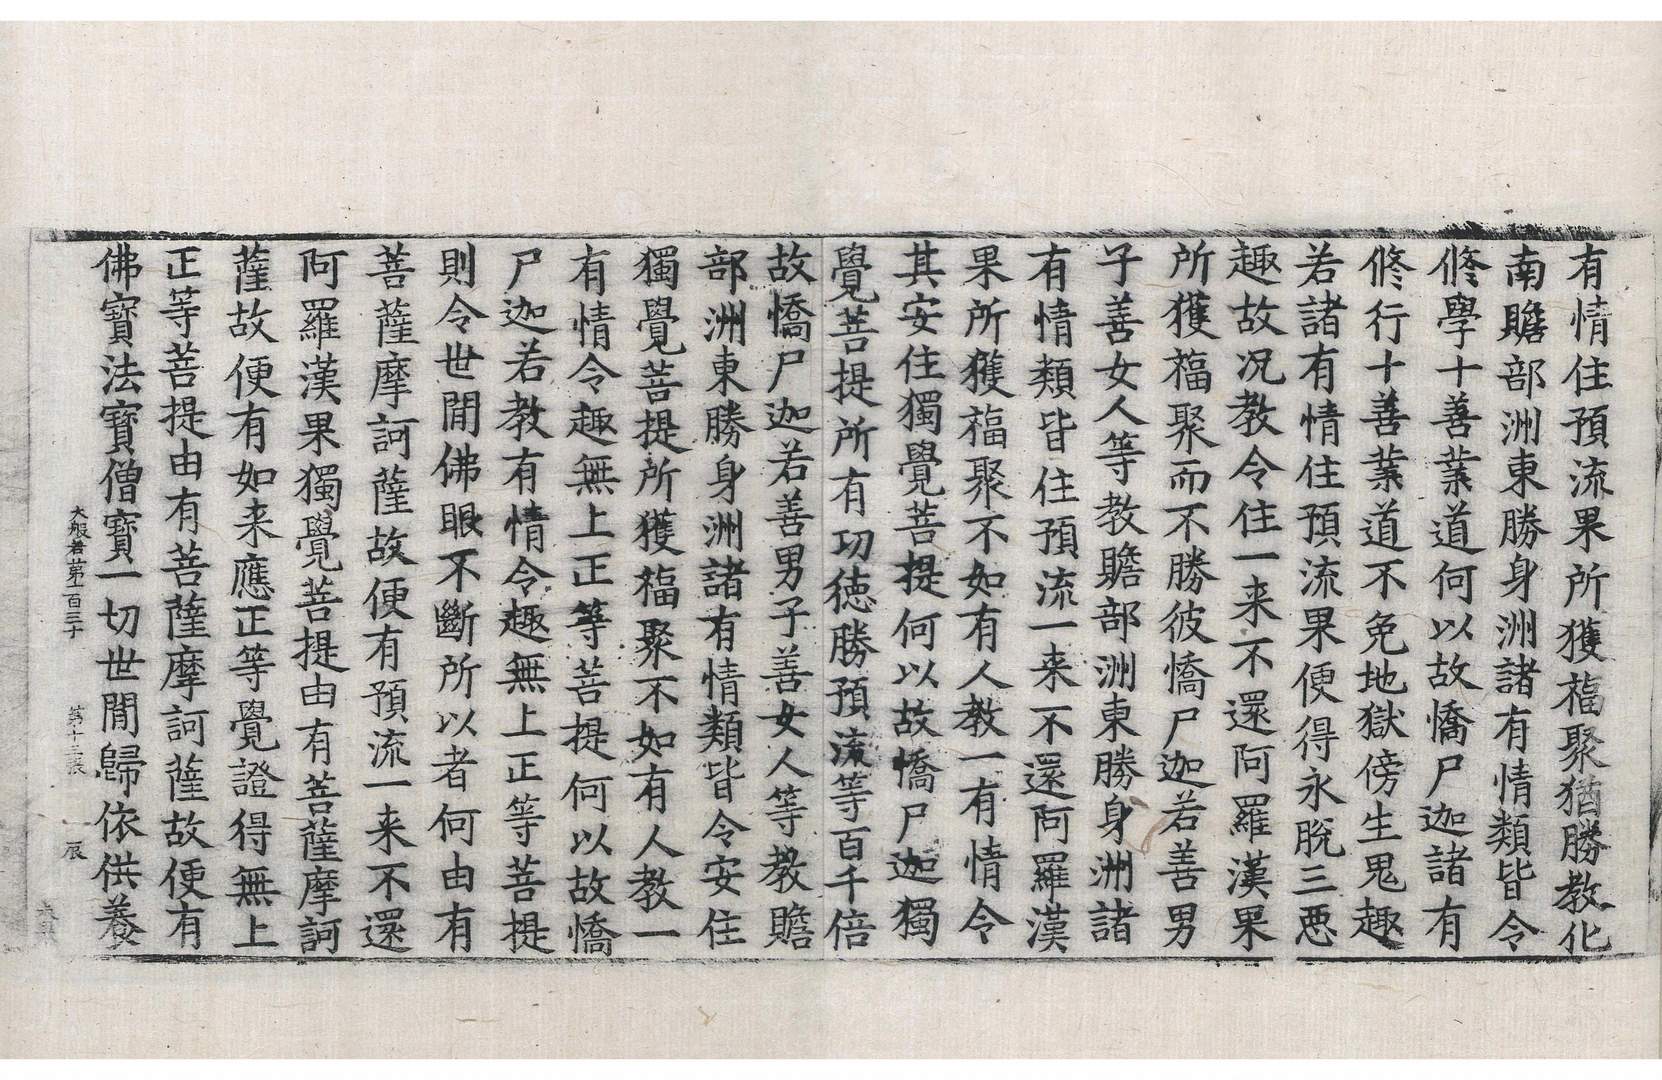 有情住預流果所獲福聚猶勝教化
南贍部洲東勝身洲諸有情類皆令
修學十善業道何以故憍尸迦諸有
修行十善業道不免地獄傍生鬼趣
若諸有情住預流果便得永脫三惡
趣故况教令住一来不還阿羅漢果
所獲福聚而不勝彼憍尸迦若善男
子善女人等教贍部洲東勝身洲諸
有情類皆住預流一来不還阿羅漢
果所獲福聚不如有人教一有情令
其安住獨覺菩提何以故憍尸迦獨
覺菩提所有功德勝預流等百千倍
故憍尸迦若善男子善女人等教贍
部洲東勝身洲諸有情類皆令安住
獨覺菩提所獲福聚不如有人教一
有情令趣無上正等菩提何以故憍
尸迦若教有情令趣無上正等菩提
則令世閒佛眼不斷所以者何由有
菩薩摩訶薩故便有預流一来不還
阿羅漢果獨覺菩提由有菩薩摩訶
薩故便有如来應正等覺證得無上
正等菩提由有菩薩摩訶薩故便有
佛寶法寶僧寶一切世閒歸依供養
大般若第一百三十 第十三張 辰